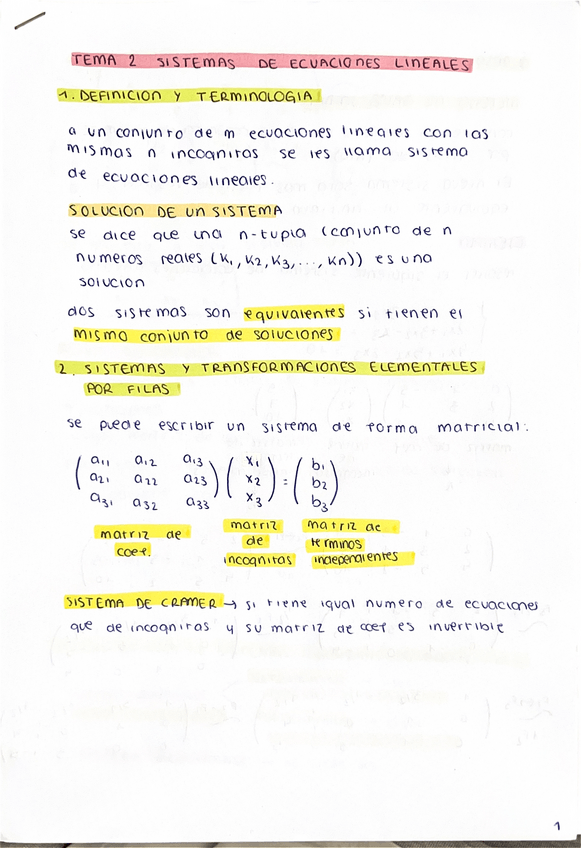 TEMA 2 SISTEMAS DE ECUACIONES LINEALES
1. DEFINICION Y TERMINOLOGIA
a un conjunto de m ecuaciones lineales con las
mismas n incognitas se les llama sistema
de ecuaciones lineales.
SOLUCION DE UN SISTEMA
se dice que una n-tupla (conjunto de n
numeros reales (K₁, K₂, K₃, ..., Kn)) es una
solucion
dos sistemas son equivalentes si tienen el
mismo conjunto de soluciones
2. SISTEMAS Y TRANSFORMACIONES ELEMENTALES
POR FILAS
se puede escribir un sistema de forma matricial:
a₁₁ a₁₂ a₁₃ x₁ b₁
a₂₁ a₂₂ a₂₃ x₂ = b₂
a₃₁ a₃₂ a₃₃ x₃ b₃
matriz de coef.
matriz de incognitas
matriz de terminos independientes
SISTEMA DE CRAMER → si tiene igual numero de ecuaciones
que de incognitas y su matriz de coef es invertible
1